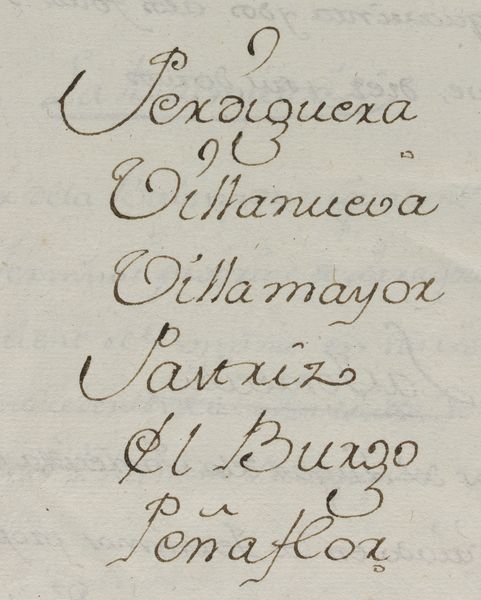 Perdiguera
Villanueva
Villamayor
Pastriz
El Burgo
Peñaflor